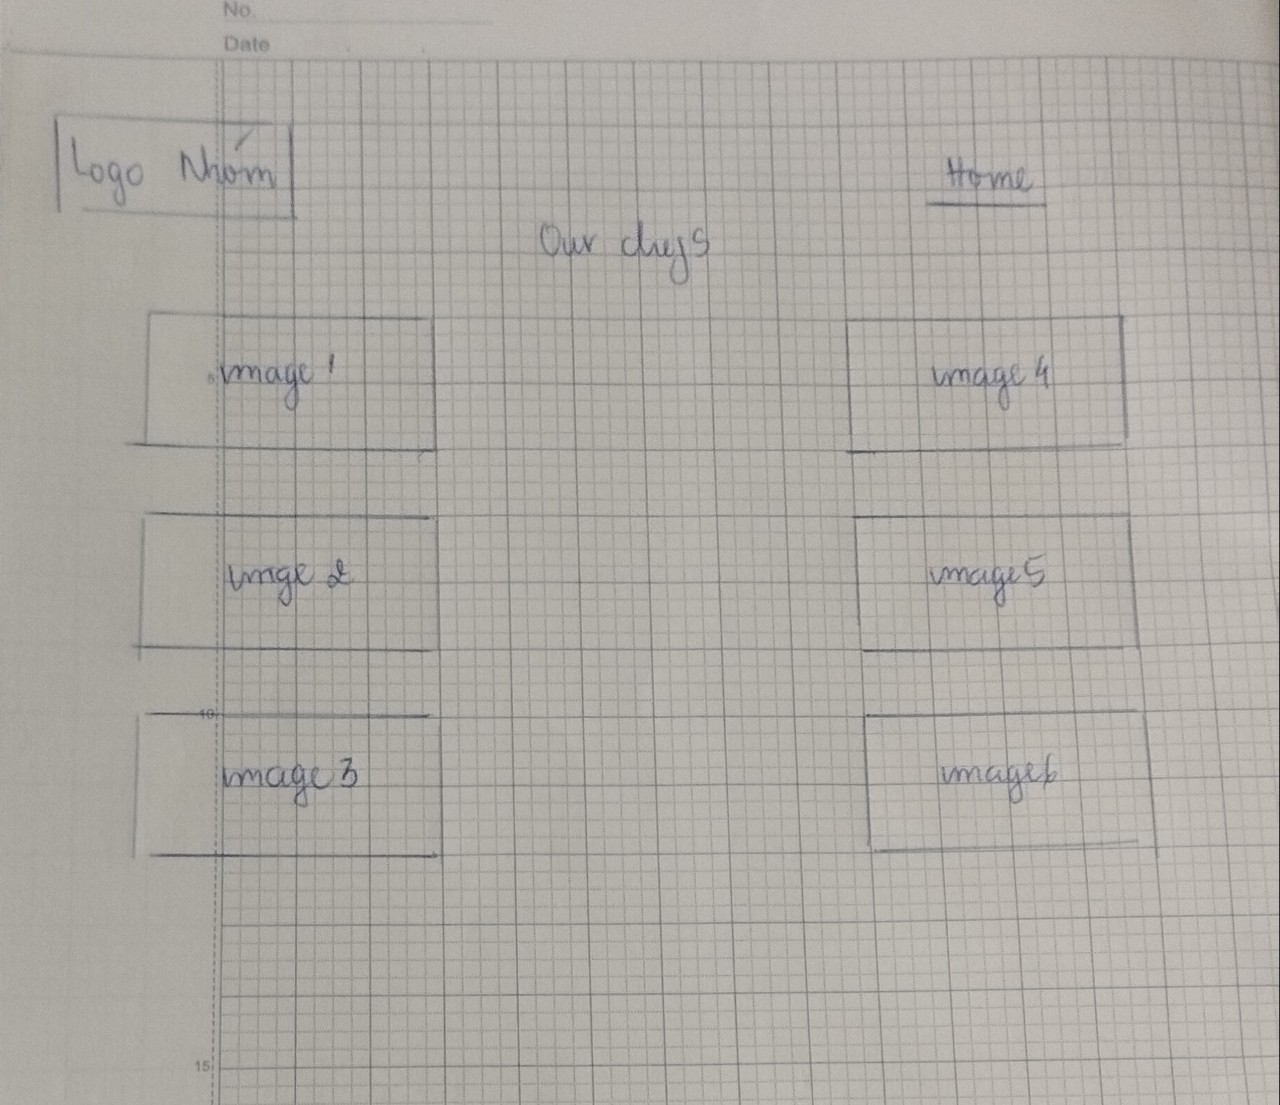 No.
Date
Logo Nhóm
Home
Our days
image 1
image 4
imge 2
image 5
10
image 3
image 6
15